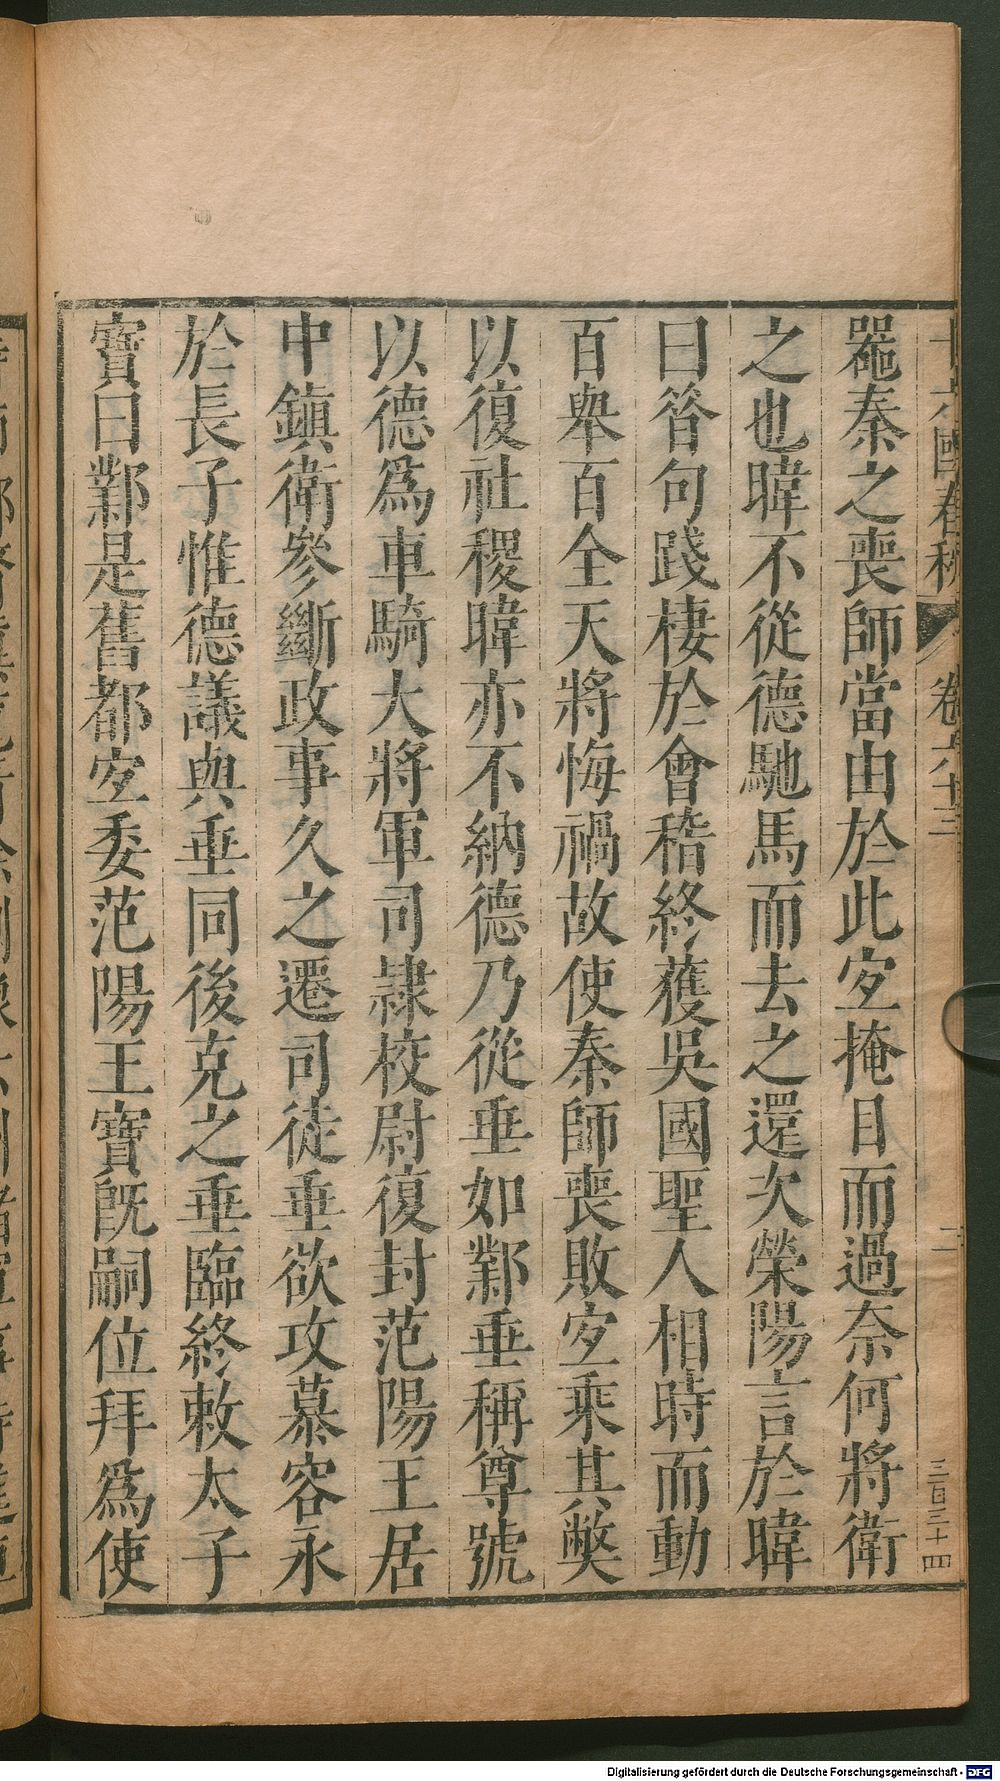 十六國春秋 卷六十三 二 三百三十四
嚻秦之喪師當由於此宐掩目而過奈何將衛
之也暐不從德馳馬而去之還次滎陽言於暐
曰昝句踐棲於會稽終獲吳國聖人相時而動
百舉百全天將悔禍故使秦師喪敗宐乘其弊
以復社稷暐亦不納德乃從垂如鄴垂稱尊號
以德爲車騎大將軍司隷校尉復封范陽王居
中鎮衛參斷政事久之遷司徒垂欲攻慕容永
於長子惟德議與垂同後克之垂臨終敕太子
寶曰鄴是舊都宐委范陽王寶旣嗣位拜爲使
Digitalisierung gefördert durch die Deutsche Forschungsgemeinschaft - DFG